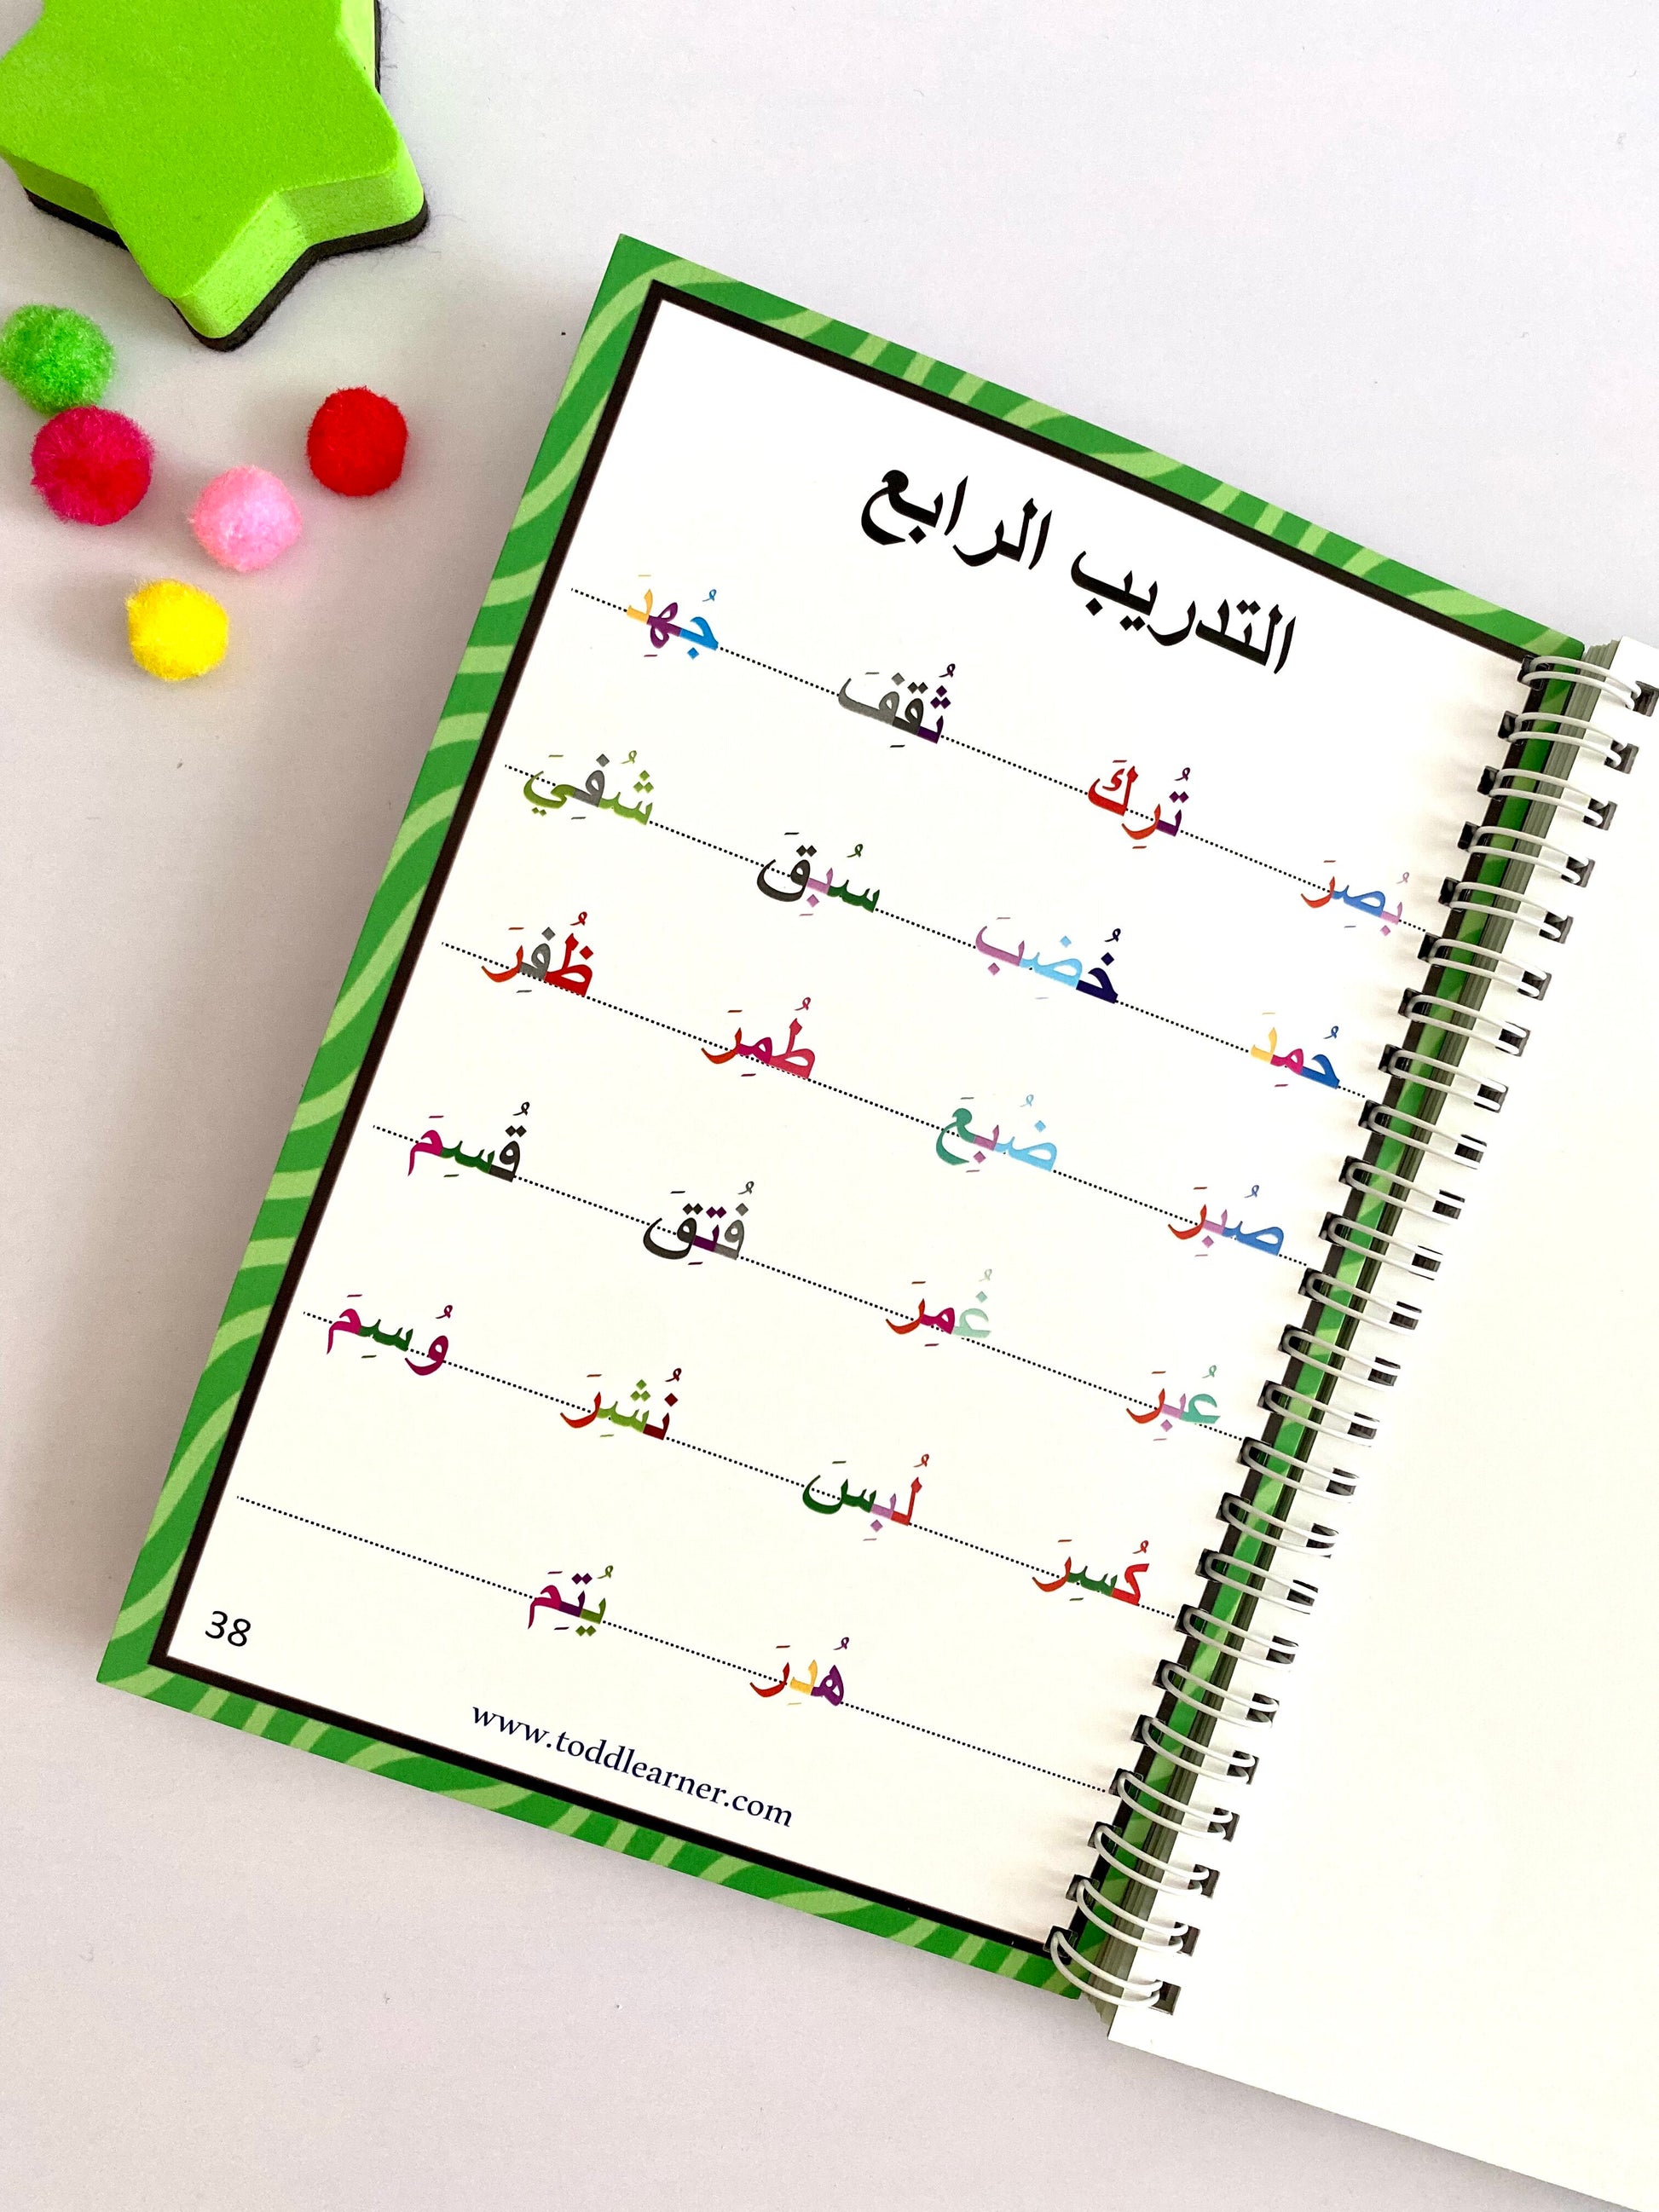 التدريب الرابع
بُصِرَ تُرِكَ ثُقِفَ جُهِدَ
حُمِدَ خُضِبَ سُبِقَ شُفِيَ
صُبِرَ ضُبِعَ طُمِرَ ظُفِرَ
عُبِرَ غُمِرَ فُتِقَ قُسِمَ
كُسِرَ لُبِسَ نُشِرَ وُسِمَ
هُدِرَ يُتِمَ
38
www.toddlearner.com